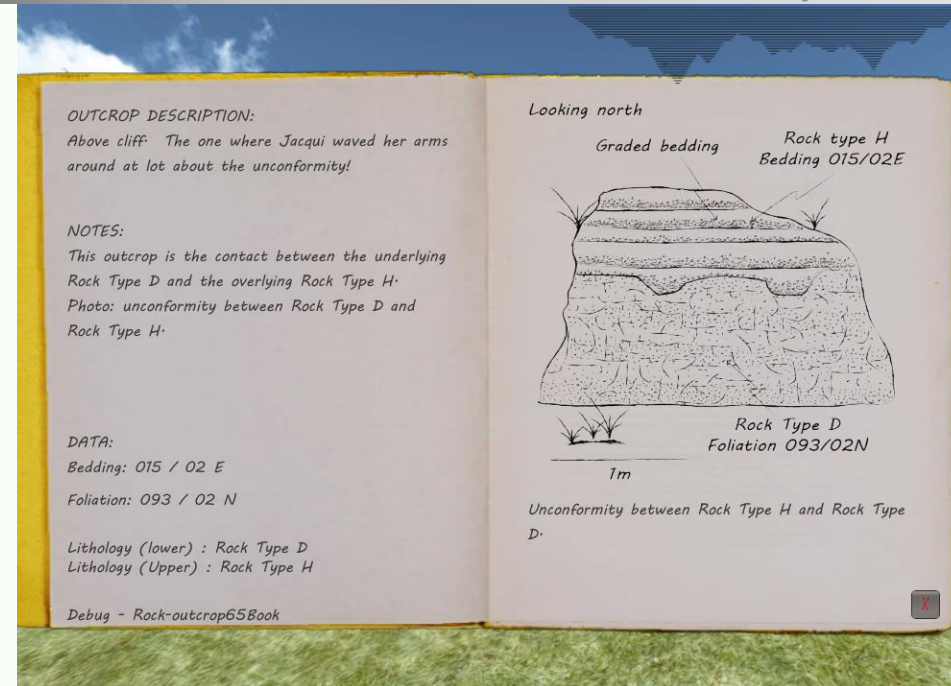 OUTCROP DESCRIPTION:
Above cliff. The one where Jacqui waved her arms
around at lot about the unconformity!
NOTES:
This outcrop is the contact between the underlying
Rock Type D and the overlying Rock Type H.
Photo: unconformity between Rock Type D and
Rock Type H.
DATA:
Bedding: 015 / 02 E
Foliation: 093 / 02 N
Lithology (lower) : Rock Type D
Lithology (Upper) : Rock Type H
Debug - Rock-outcrop65Book
Looking north
Graded bedding
Rock type H
Bedding 015/02E
Rock Type D
Foliation 093/02N
1m
Unconformity between Rock Type H and Rock Type
D.
X